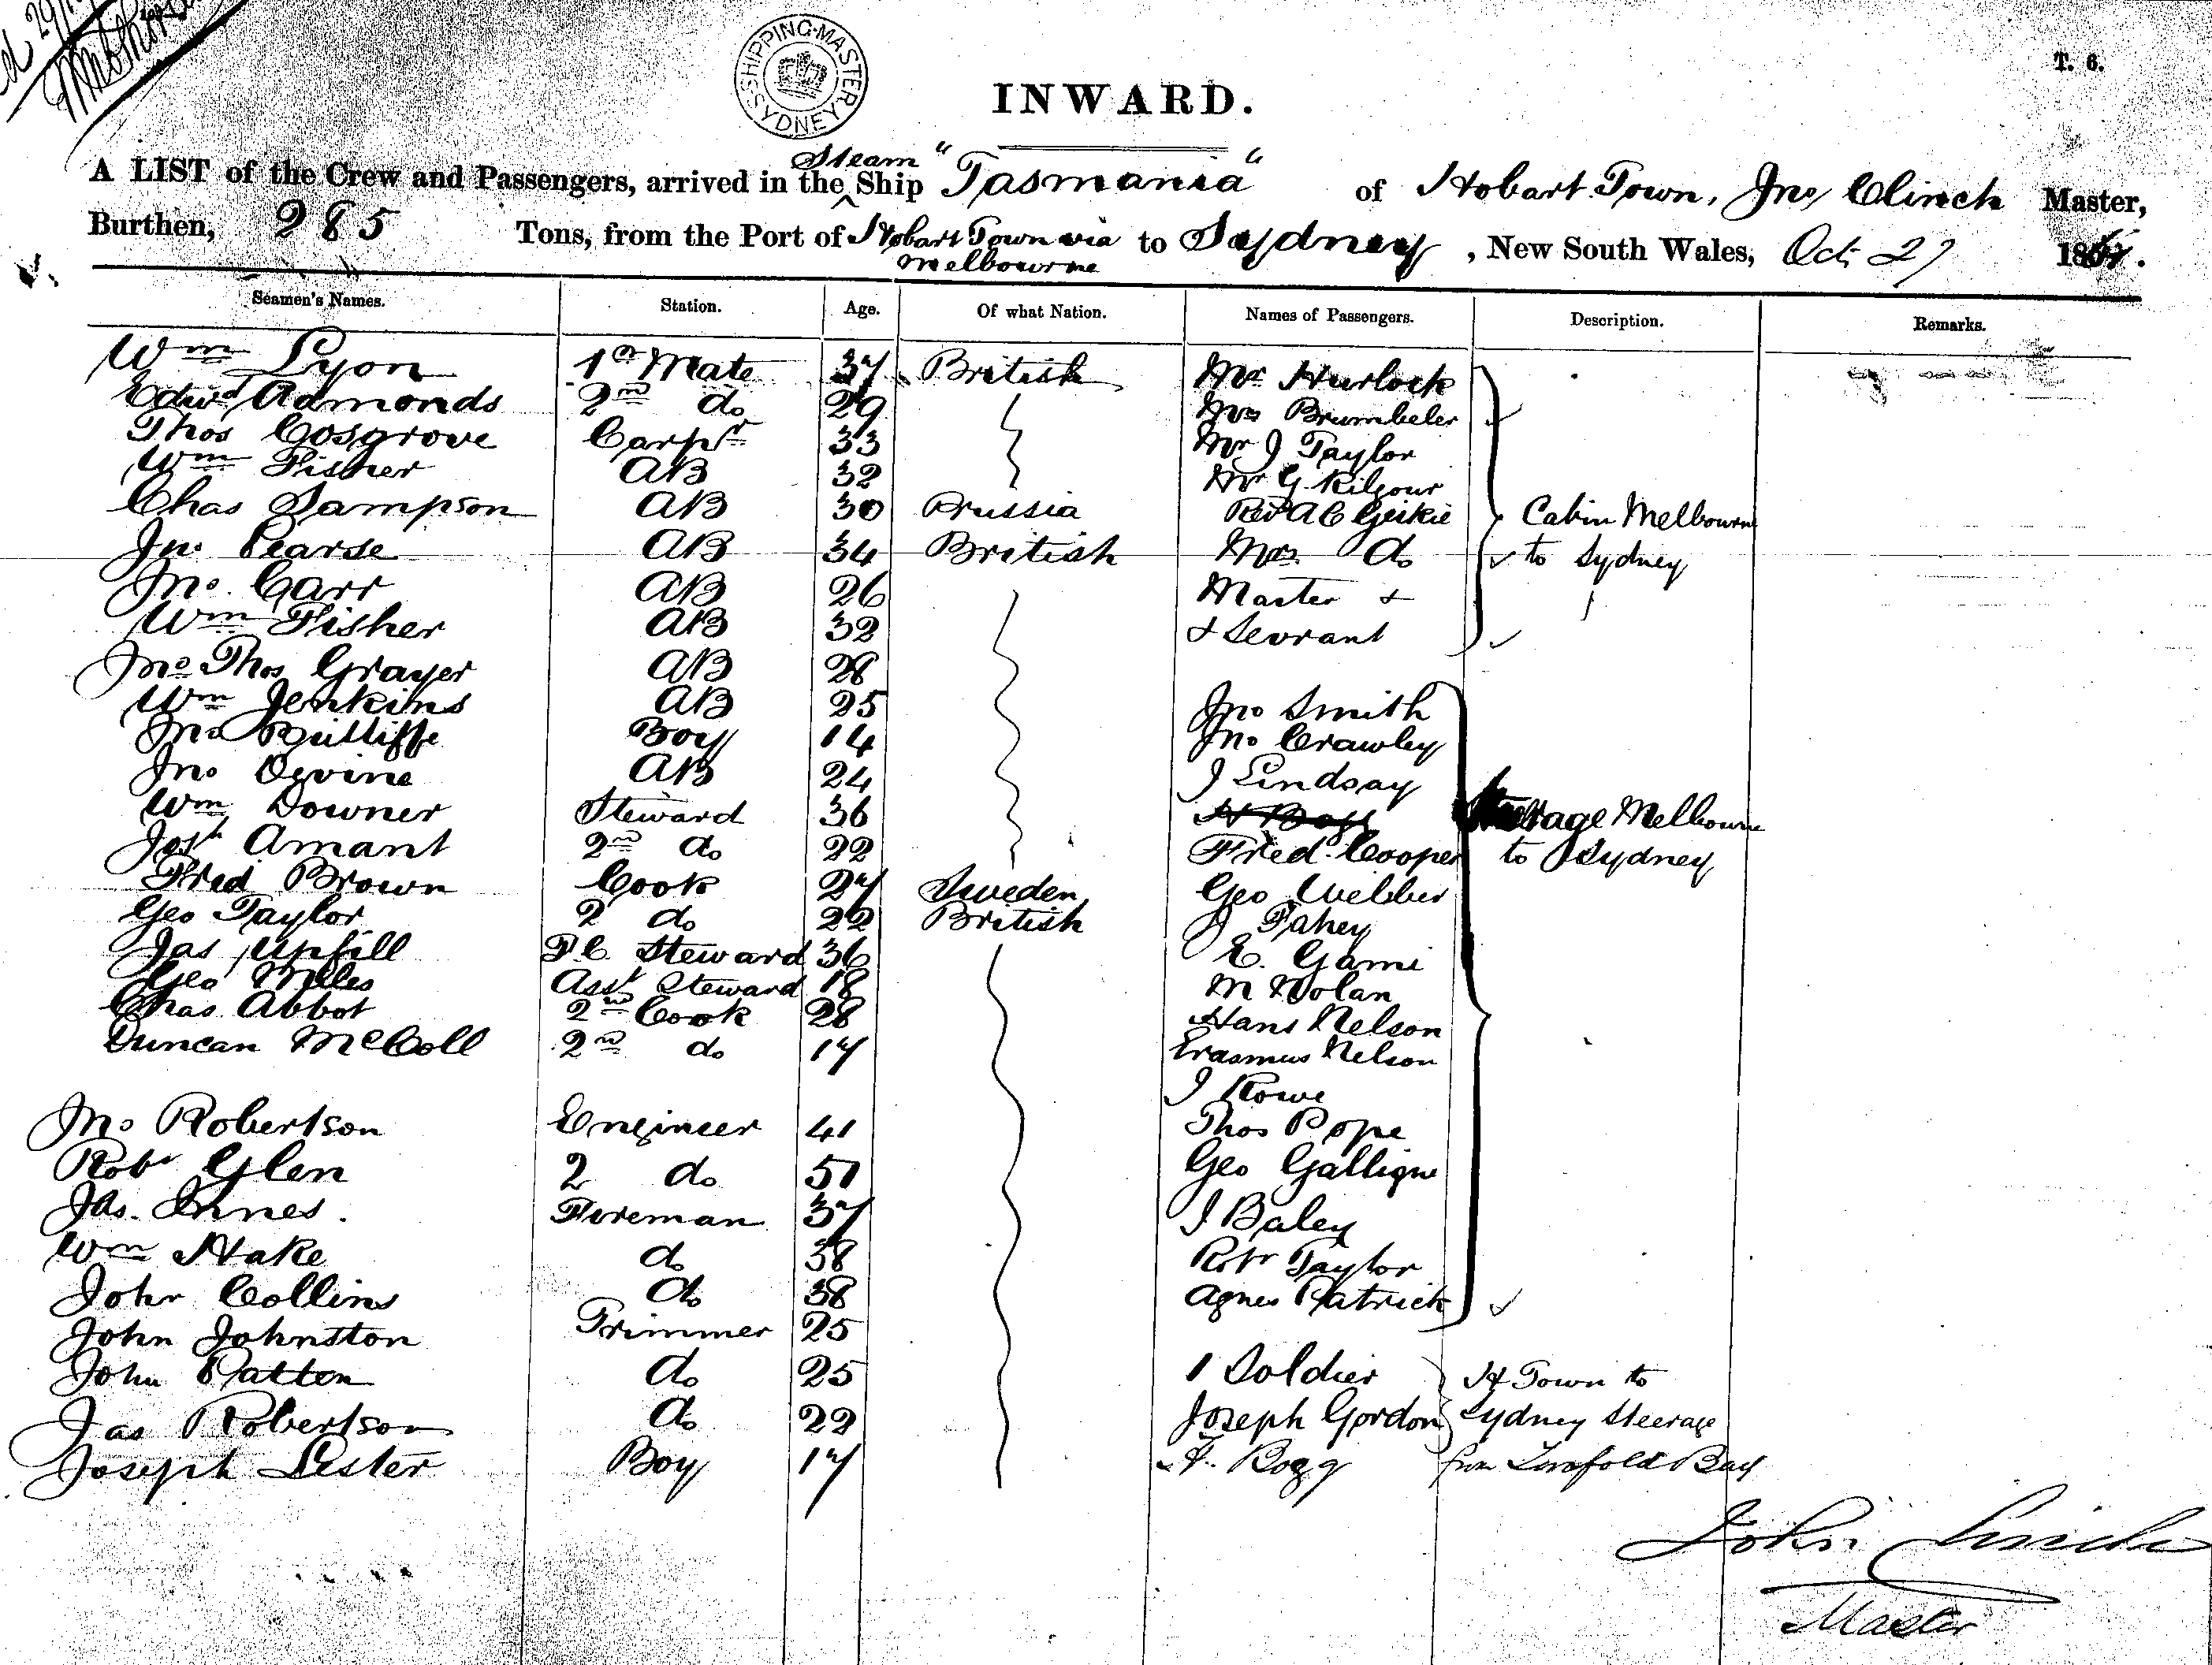 SHIPPING MASTER
SYDNEY
T. 6.
INWARD.
A LIST of the Crew and Passengers, arrived in the Steam Ship "Tasmania" of Hobart Town, Jno Clinch Master,
Burthen, 285 Tons, from the Port of Hobart Town via Melbourne to Sydney, New South Wales, Oct 27 186
Seamen's Names. Station. Age. Of what Nation. Names of Passengers. Description. Remarks.
Wm Lyon 1st Mate 37 British Mr Hurlock
Edwd Admonds 2nd do 29 Mrs Brumbeler
Thos Cosgrove Carpr 33 Mr J Taylor
Wm Fisher AB 32 Mr G Kilgour
Chas Sampson AB 30 Prussia Revd A C Geikie Cabin Melbourne
Jno Pearse AB 34 British Mrs do to Sydney
Jno. Carr AB 26 Master +
Wm Fisher AB 32 + Servant
Jno Thos Grayer AB 28
Wm Jenkins AB 25 Jno Smith
Jno Boy 14 Jno Crawley
Jno Devine AB 24 J Lindsay
Wm Downer Steward 36 H Bogg Steerage Melbourne
Josh Amant 2nd do 22 Fred. Cooper to Sydney
Fred Brown Cook 27 Sweden Geo Webber
Geo Taylor 2 do 22 British J Fahey
Jas Upfill F.C. Steward 36 E. Gami
Geo Miles Asst Steward 18 M Nolan
Chas Abbot 2nd Cook 28 Hans Nelson
Duncan McColl 2nd do 17 Erasmus Nelson
J Rowe
Jno Robertson Engineer 41 Thos Pope
Robt Glen 2 do 51 Geo Galligne
Jas. Innes. Fireman 37 J Baley
Wm Hake do 38 Robt Taylor
John Collins do 38 Agnes Patrick
John Johnston Trimmer 25
John Patten do 25 1 Soldier H Town to
Jas Robertson do 22 Joseph Gordon Sydney Steerage
Joseph Lester Boy 17 H. Bogg from Twofold Bay
John Clinch
Master